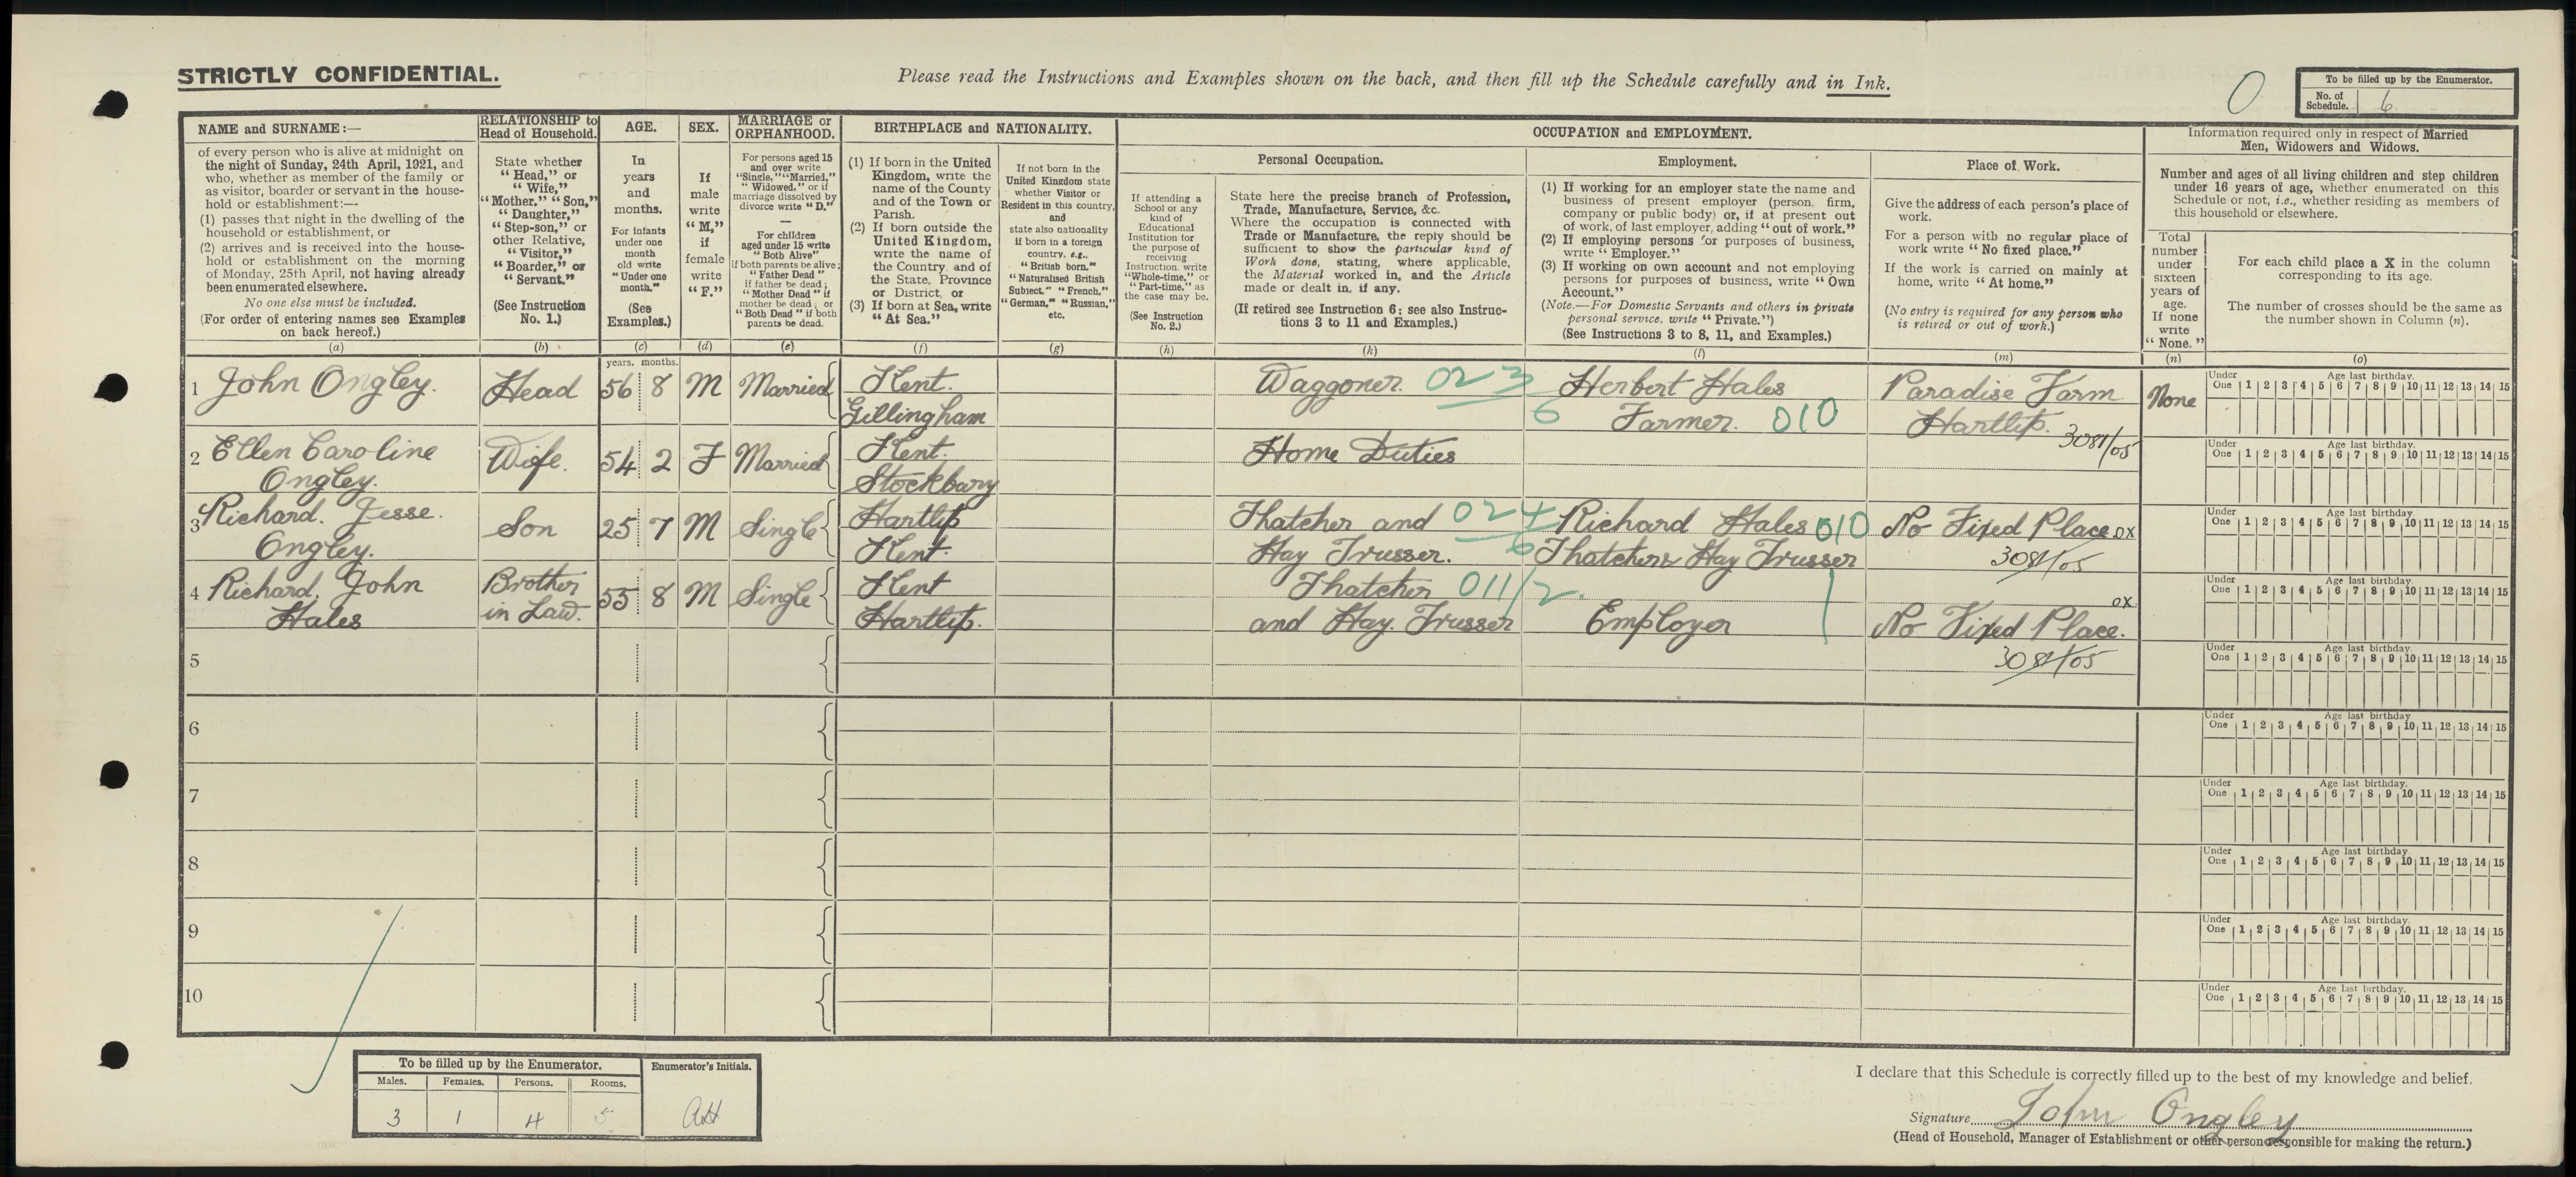 STRICTLY CONFIDENTIAL.
Please read the Instructions and Examples shown on the back, and then fill up the Schedule carefully and in Ink.
0
To be filled up by the Enumerator.
No. of Schedule. 6
NAME and SURNAME :—
of every person who is alive at midnight on
the night of Sunday, 24th April, 1921, and
who, whether as member of the family or
as visitor, boarder or servant in the house-
hold or establishment:—
(1) passes that night in the dwelling of the
household or establishment, or
(2) arrives and is received into the house-
hold or establishment on the morning
of Monday, 25th April, not having already
been enumerated elsewhere.
No one else must be included.
(For order of entering names see Examples
on back hereof.)
(a)
RELATIONSHIP to
Head of Household.
State whether
"Head," or
"Wife,"
"Mother," "Son,"
"Daughter,"
"Step-son," or
other Relative,
"Visitor,"
"Boarder," or
"Servant."
(See Instruction
No. 1.)
(b)
AGE.
In
years
and
months.
For infants
under one
month
old write
"Under one
month."
(See
Examples.)
(c)
SEX.
If
male
write
"M,"
if
female
write
"F."
(d)
MARRIAGE or
ORPHANHOOD.
For persons aged 15
and over write
"Single," "Married,"
"Widowed," or if
marriage dissolved by
divorce write "D."
—
For children
aged under 15 write
"Both Alive"
if both parents be alive;
"Father Dead"
if father be dead;
"Mother Dead" if
mother be dead; or
"Both Dead" if both
parents be dead.
(e)
BIRTHPLACE and NATIONALITY.
(1) If born in the United
Kingdom, write the
name of the County
and of the Town or
Parish.
(2) If born outside the
United Kingdom,
write the name of
the Country, and of
the State, Province
or District, or
(3) If born at Sea, write
"At Sea."
(f)
If not born in the
United Kingdom state
whether Visitor or
Resident in this country,
and
state also nationality
if born in a foreign
country, e.g.,
"British born,"
"Naturalised British
Subject," "French,"
"German," "Russian,"
etc.
(g)
OCCUPATION and EMPLOYMENT.
Personal Occupation.
If attending a
School or any
kind of
Educational
Institution for
the purpose of
receiving
Instruction, write
"Whole-time," or
"Part-time," as
the case may be.
(See Instruction
No. 2.)
(h)
State here the precise branch of Profession,
Trade, Manufacture, Service, &c.
Where the occupation is connected with
Trade or Manufacture, the reply should be
sufficient to show the particular kind of
Work done, stating, where applicable,
the Material worked in, and the Article
made or dealt in, if any.
(If retired see Instruction 6: see also Instruc-
tions 3 to 11 and Examples.)
(k)
Employment.
(1) If working for an employer state the name and
business of present employer (person, firm,
company or public body) or, if at present out
of work, of last employer, adding "out of work."
(2) If employing persons for purposes of business,
write "Employer."
(3) If working on own account and not employing
persons for purposes of business, write "Own
Account."
(Note.—For Domestic Servants and others in private
personal service, write "Private.")
(See Instructions 3 to 8, 11, and Examples.)
(l)
Place of Work.
Give the address of each person's place of
work.
For a person with no regular place of
work write "No fixed place."
If the work is carried on mainly at
home, write "At home."
(No entry is required for any person who
is retired or out of work.)
(m)
Information required only in respect of Married
Men, Widowers and Widows.
Number and ages of all living children and step children
under 16 years of age, whether enumerated on this
Schedule or not, i.e., whether residing as members of
this household or elsewhere.
Total
number
under
sixteen
years of
age.
If none
write
"None."
(n)
For each child place a X in the column
corresponding to its age.
The number of crosses should be the same as
the number shown in Column (n).
(o)
years. months.
1 John Ongley. Head 56 8 M Married Kent. Gillingham Waggoner. 023 6 Herbert Hales Farmer. 010 Paradise Farm Hartlip. 3081/05 None
Under One 1 2 3 4 5 6 7 8 9 10 11 12 13 14 15 Age last birthday.
2 Ellen Caroline Ongley. Wife. 54 2 F Married Kent. Stockbury Home Duties
Under One 1 2 3 4 5 6 7 8 9 10 11 12 13 14 15 Age last birthday.
3 Richard. Jesse. Ongley. Son 25 7 M Single Hartlip Kent. Thatcher and Hay Trusser. 024 6 Richard Hales 010 Thatcher & Hay Trusser No Fixed Place ox 3081/05
Under One 1 2 3 4 5 6 7 8 9 10 11 12 13 14 15 Age last birthday.
4 Richard. John Hales Brother in Law. 55 8 M Single Kent Hartlip. Thatcher 011/2. and Hay. Trusser Employer No Fixed Place. ox 3081/05
Under One 1 2 3 4 5 6 7 8 9 10 11 12 13 14 15 Age last birthday.
5
Under One 1 2 3 4 5 6 7 8 9 10 11 12 13 14 15 Age last birthday.
6
Under One 1 2 3 4 5 6 7 8 9 10 11 12 13 14 15 Age last birthday.
7
Under One 1 2 3 4 5 6 7 8 9 10 11 12 13 14 15 Age last birthday.
8
Under One 1 2 3 4 5 6 7 8 9 10 11 12 13 14 15 Age last birthday.
9
Under One 1 2 3 4 5 6 7 8 9 10 11 12 13 14 15 Age last birthday.
10
Under One 1 2 3 4 5 6 7 8 9 10 11 12 13 14 15 Age last birthday.
To be filled up by the Enumerator.
Males. Females. Persons. Rooms.
3 1 4 5
Enumerator's Initials.
AH
I declare that this Schedule is correctly filled up to the best of my knowledge and belief.
Signature John Ongley
(Head of Household, Manager of Establishment or other person responsible for making the return.)